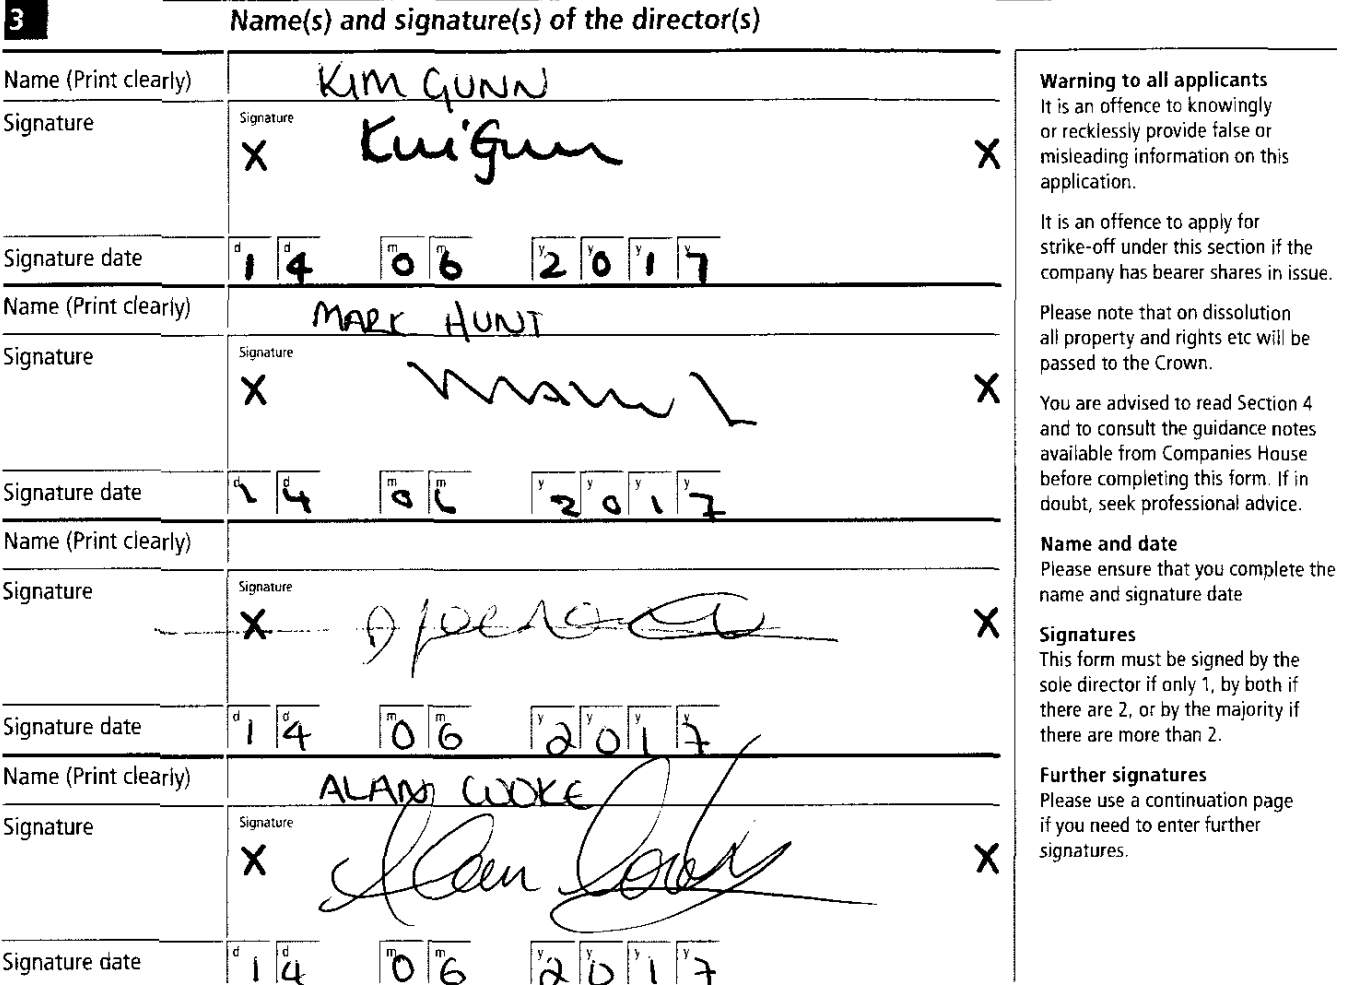 3 Name(s) and signature(s) of the director(s)
Name (Print clearly) KIM GUNN
Signature Signature
X Kim Gunn X
Signature date d 1 d 4 m 0 m 6 y 2 y 0 y 1 y 7
Name (Print clearly) MARK HUNT
Signature Signature
X X
Signature date d 1 d 4 m 0 m 6 y 2 y 0 y 1 y 7
Name (Print clearly)
Signature Signature
X X
Signature date d 1 d 4 m 0 m 6 y 2 y 0 y 1 y 7
Name (Print clearly) ALAN COOKE
Signature Signature
X Alan Cooke X
Signature date d 1 d 4 m 0 m 6 y 2 y 0 y 1 y 7
Warning to all applicants
It is an offence to knowingly
or recklessly provide false or
misleading information on this
application.
It is an offence to apply for
strike-off under this section if the
company has bearer shares in issue.
Please note that on dissolution
all property and rights etc will be
passed to the Crown.
You are advised to read Section 4
and to consult the guidance notes
available from Companies House
before completing this form. If in
doubt, seek professional advice.
Name and date
Please ensure that you complete the
name and signature date
Signatures
This form must be signed by the
sole director if only 1, by both if
there are 2, or by the majority if
there are more than 2.
Further signatures
Please use a continuation page
if you need to enter further
signatures.